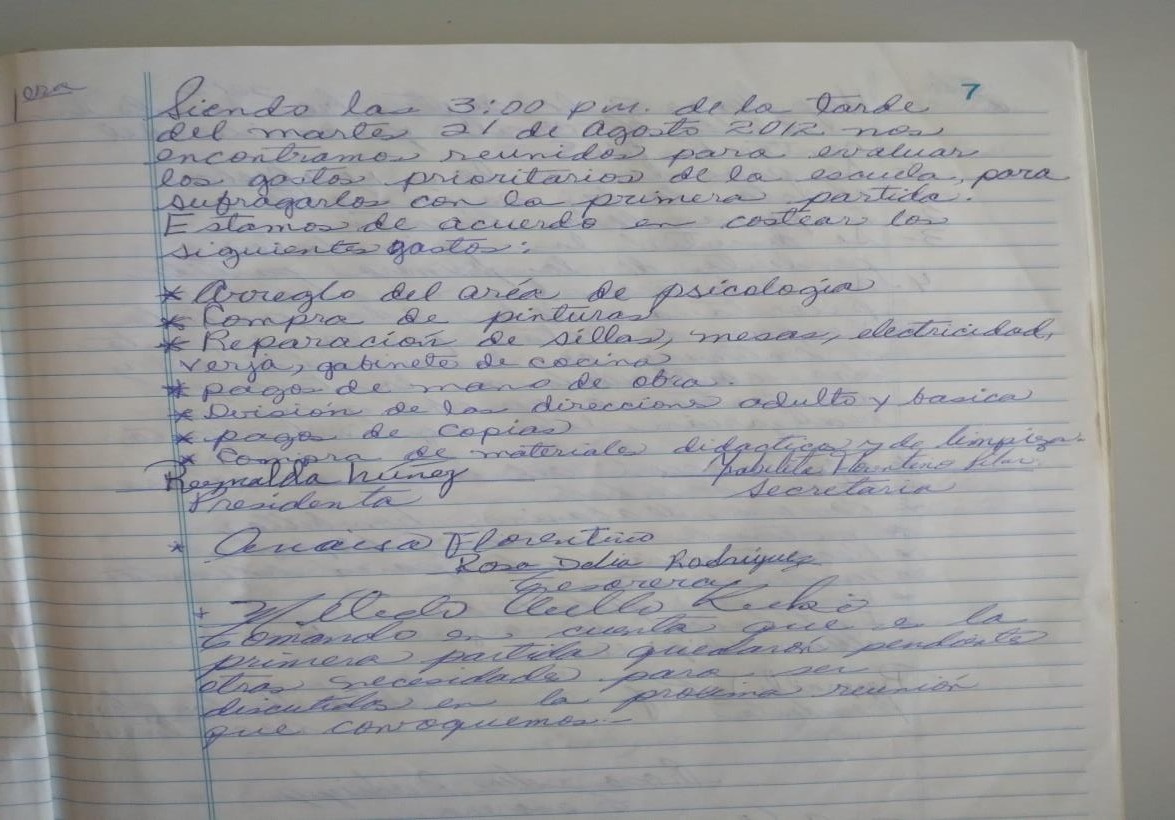 ora
7
Siendo las 3:00 p.m. de la tarde
del martes 21 de Agosto 2012 nos
encontramos reunidos para evaluar
los gastos prioritarios de la escuela, para
sufragarlos con la primera partida.
Estamos de acuerdo en costear los
siguientes gastos:
* Arreglo del aréa de psicologia
* Compra de pinturas
* Reparación de sillas, mesas, electricidad,
verja, gabinete de cocina
* pagos de mano de obra.
* División de las direcciones adulto y basica
* pagos de copias
* Compra de materiales didacticos y de limpieza.
Reynalda Núñez
Florentino
Presidenta
Secretaria
* Florentino
Rosa Delia Rodríguez
Tesorera
Tomando en cuenta que e la
primera partida quedarón pendientes
otras necesidades para ser
discutidas en la proxima reunión
que convoquemos.-